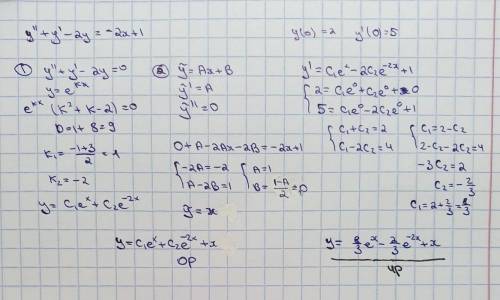 y'' + y' - 2y = -2x + 1
y(0) = 2 y'(0) = 5
① y'' + y' - 2y = 0
y = e^{kx}
e^{kx} (k² + k - 2) = 0
D = 1 + 8 = 9
k₁ = \frac{-1+3}{2} = 1
k₂ = -2
y = C₁e^x + C₂e^{-2x}
② ỹ = Ax + B
ỹ' = A
ỹ'' = 0
0 + A - 2Ax - 2B = -2x + 1
{ -2A = -2
A - 2B = 1
{ A = 1
B = \frac{1-A}{2} = 0
ỹ = x
y = C₁e^x + C₂e^{-2x} + x
ОР
y' = C₁e^x - 2C₂e^{-2x} + 1
{ 2 = C₁e⁰ + C₂e⁰ + 0
5 = C₁e⁰ - 2C₂e⁰ + 1
{ C₁ + C₂ = 2
C₁ - 2C₂ = 4
{ C₁ = 2 - C₂
2 - C₂ - 2C₂ = 4
-3C₂ = 2
C₂ = -\frac{2}{3}
C₁ = 2 + \frac{2}{3} = \frac{8}{3}
y = \frac{8}{3}e^x - \frac{2}{3}e^{-2x} + x
ЧР